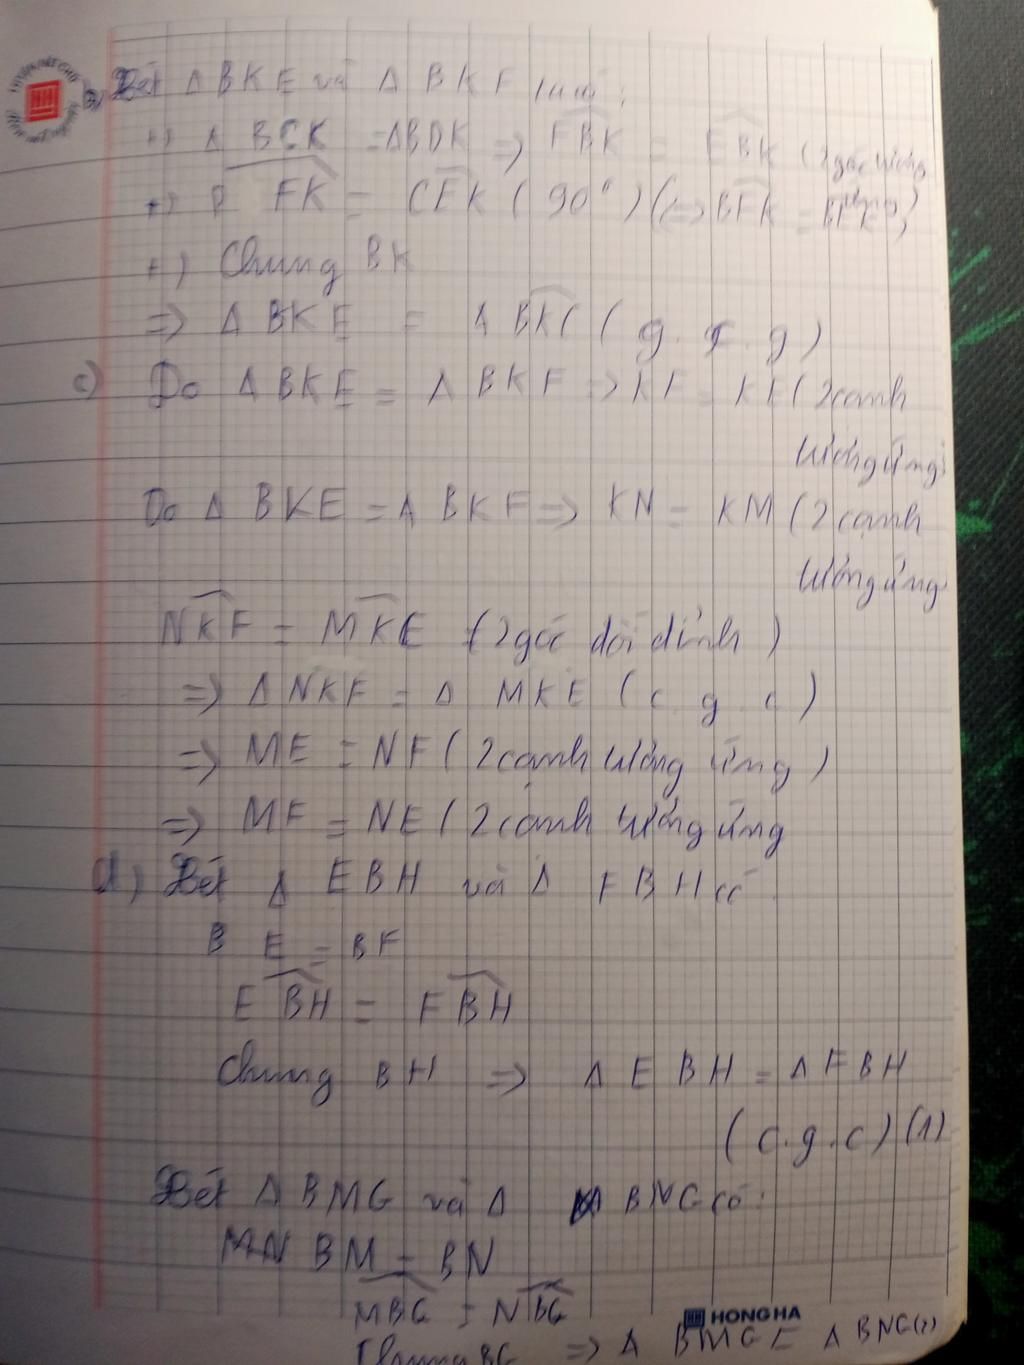 Xét Δ BKE và Δ BKF ta có:
+) Δ BCK = ΔBDK => FBK = EBK (2 góc tương ứng)
+) FK = CEK (90°) (=> BFK = BEK)
+) Chung BK
=> Δ BKE = Δ BKC (g.c.g)
c) Do Δ BKE = Δ BKF => KF = KE (2 cạnh
tương ứng)
Do Δ BKE = Δ BKF => KN = KM (2 cạnh
tương ứng
NKF = MKE (2 góc đối đỉnh)
=> Δ NKF = Δ MKE (c.g.c)
=> ME = NF (2 cạnh tương ứng)
=> MF = NE (2 cạnh tương ứng
d) Xét Δ EBH và Δ FBH có
BE = BF
EBH = FBH
Chung BH => Δ EBH = Δ FBH
(c.g.c) (1)
Xét Δ BMG và Δ BNG có:
MN BM = BN
MBG = NBG
HONG HA
Chung BG => Δ BMG = Δ BNG (2)